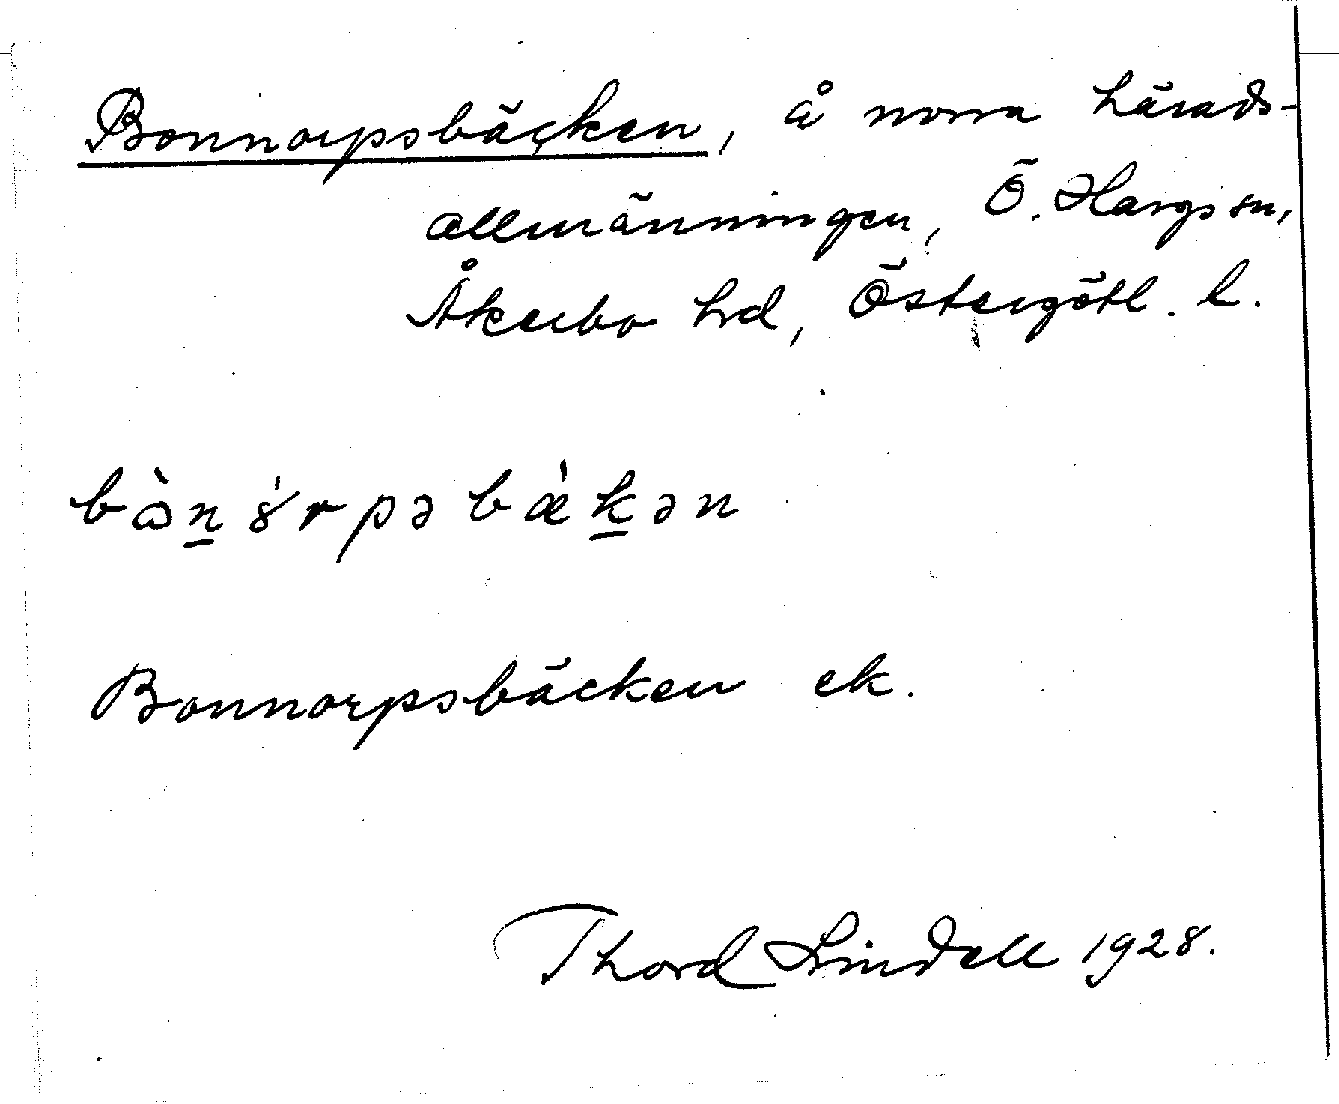 Bonnorpsbäcken, å norra härads-
allmänningen, Ö. Hargs sn,
Åkerbo hrd, Östergötl. l.
Bonnorpsbäcken ek.
Thord Lindell 1928.